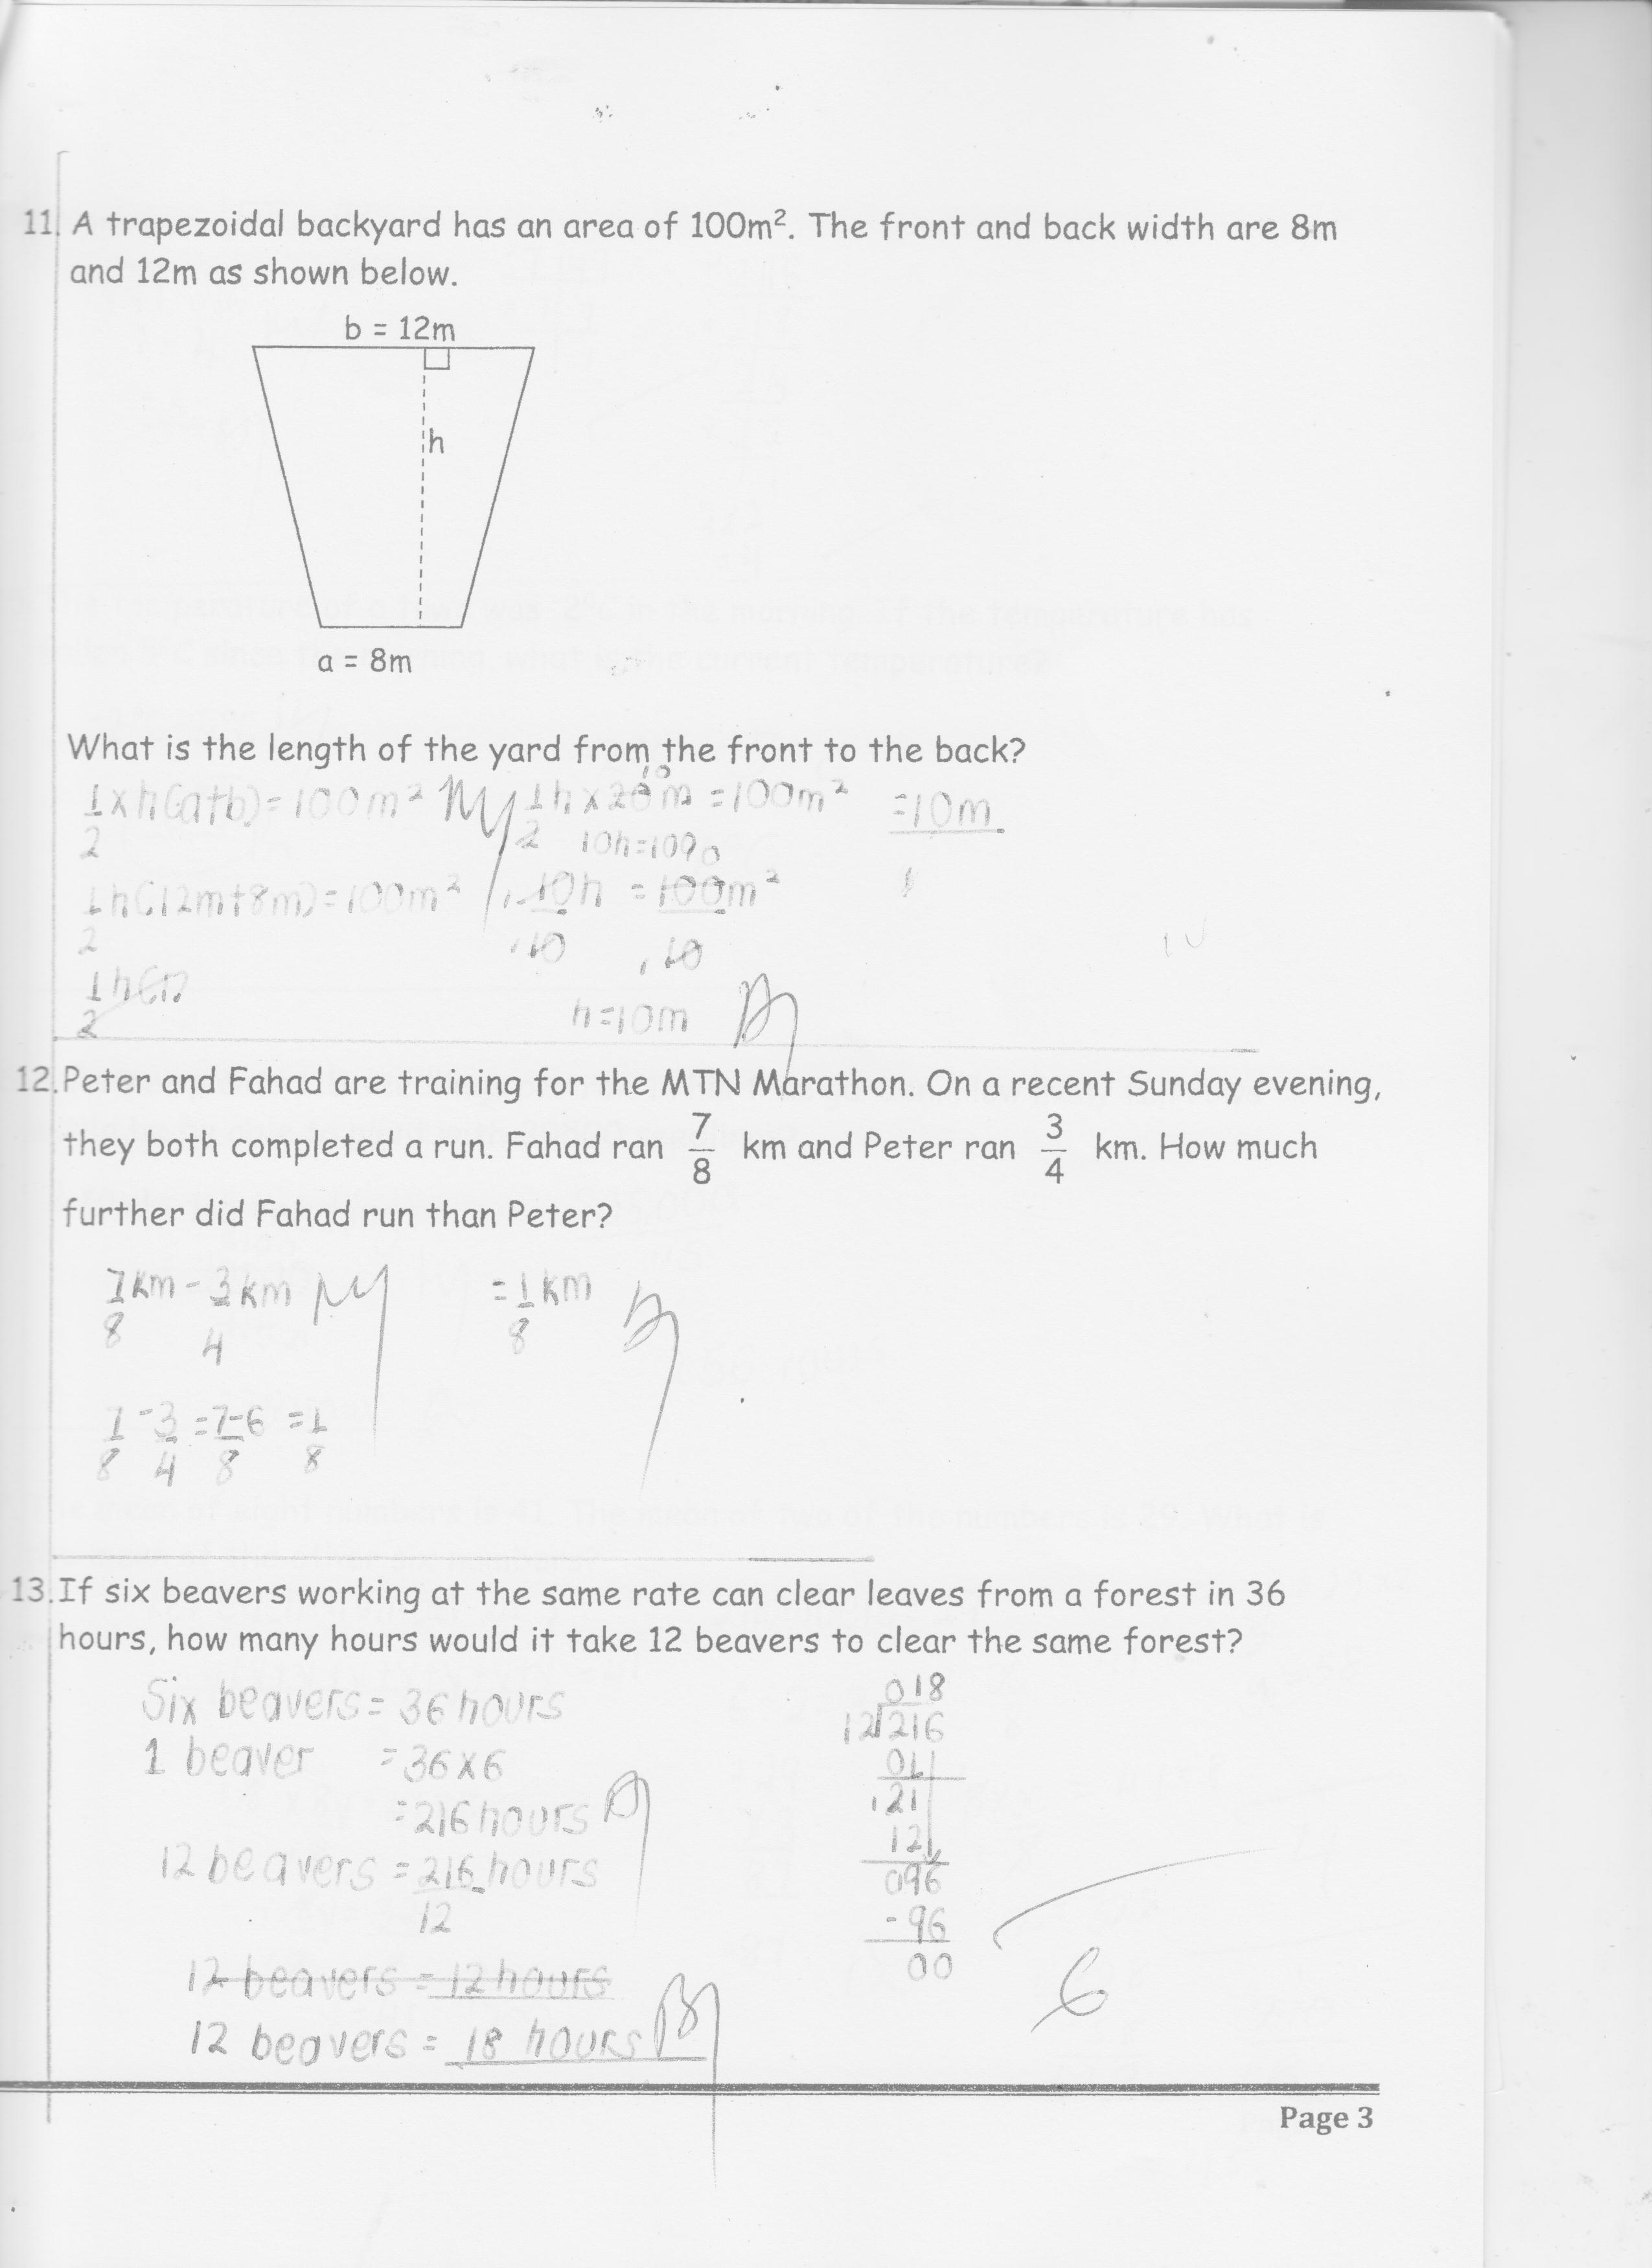 11. A trapezoidal backyard has an area of 100m². The front and back width are 8m
and 12m as shown below.
b = 12m
h
a = 8m
What is the length of the yard from the front to the back?
1/2 x h(a+b) = 100m²
1/2 h(12m+8m) = 100m²
1/2 h(12
10
1/2 h x 20m = 100m²
10h = 100
10h/10 = 100m²/10
h = 10m
= 10m
12. Peter and Fahad are training for the MTN Marathon. On a recent Sunday evening,
they both completed a run. Fahad ran 7/8 km and Peter ran 3/4 km. How much
further did Fahad run than Peter?
7/8 km - 3/4 km
= 1/8 km
7/8 - 3/4 = 7-6/8 = 1/8
13. If six beavers working at the same rate can clear leaves from a forest in 36
hours, how many hours would it take 12 beavers to clear the same forest?
Six beavers = 36 hours
1 beaver = 36 x 6
= 216 hours
12 beavers = 216/12 hours
12 beavers = 12 hours
12 beavers = 18 hours
018
12 216
01
121
121
096
- 96
00
6
Page 3